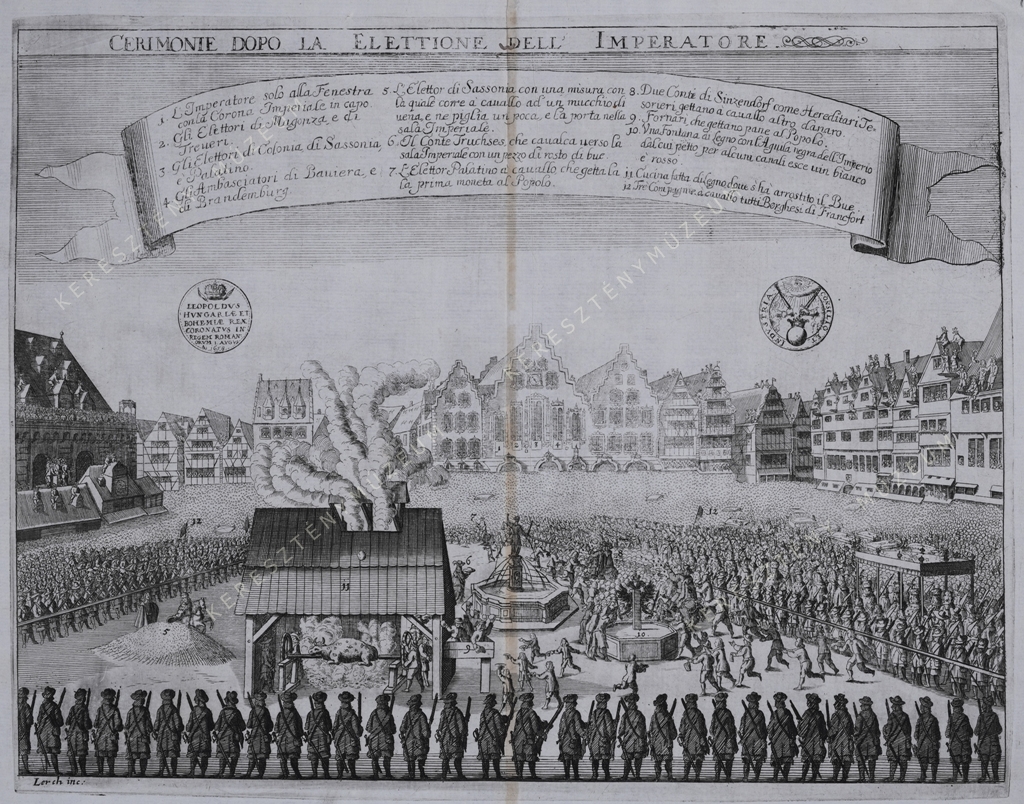 CERIMONIE DOPO LA ELETTIONE DELL' IMPERATORE.
1. L'Imperatore solo alla Fenestra
con la Corona Imperiale in capo
2. Gli Elettori di Magonza, e di
Treueri.
3 Gli Elettori di Colonia, di Sassonia
e Palatino.
4. Gl'Ambasciatori di Bauiera, e
di Brandemburg.
5. L'Elettor di Sassonia con una misura con
la quale corre a cauallo ad un mucchio di
uena, e ne piglia un poca, e la porta nella
sala Imperiale.
6. Il Conte Truchses, che caualca uerso la
sala Imperale con un pezzo di rosto di bue
7. L'Elettor Palatino a cauallo che getta la
la prima moneta al Popolo.
8. Due Conti di Sinzendorf come Hereditari Te=
sorieri gettano a cauallo altro danaro.
9. Fornari, che gettano pane al Popolo.
10. Vna Fontana di legno con l'Aquila negra dell'Imperio
dal cui petto per alcuni canali esce uin bianco
e rosso.
11 Cucina fatta di legno doue s'ha arrostito il Bue
12 Tre Compagnie a cauallo tutti Borghesi di Francfort
LEOPOLDVS
HVNGARIÆ ET
BOHEMIÆ REX
CORONATVS IN
REGEM ROMAN
ORVM I AVGV
1658
CONSILIO ET INDVSTRIA
12
12
7
6
11
5
9
10
Lerch inc:
KERESZTÉNY MÚZEUM